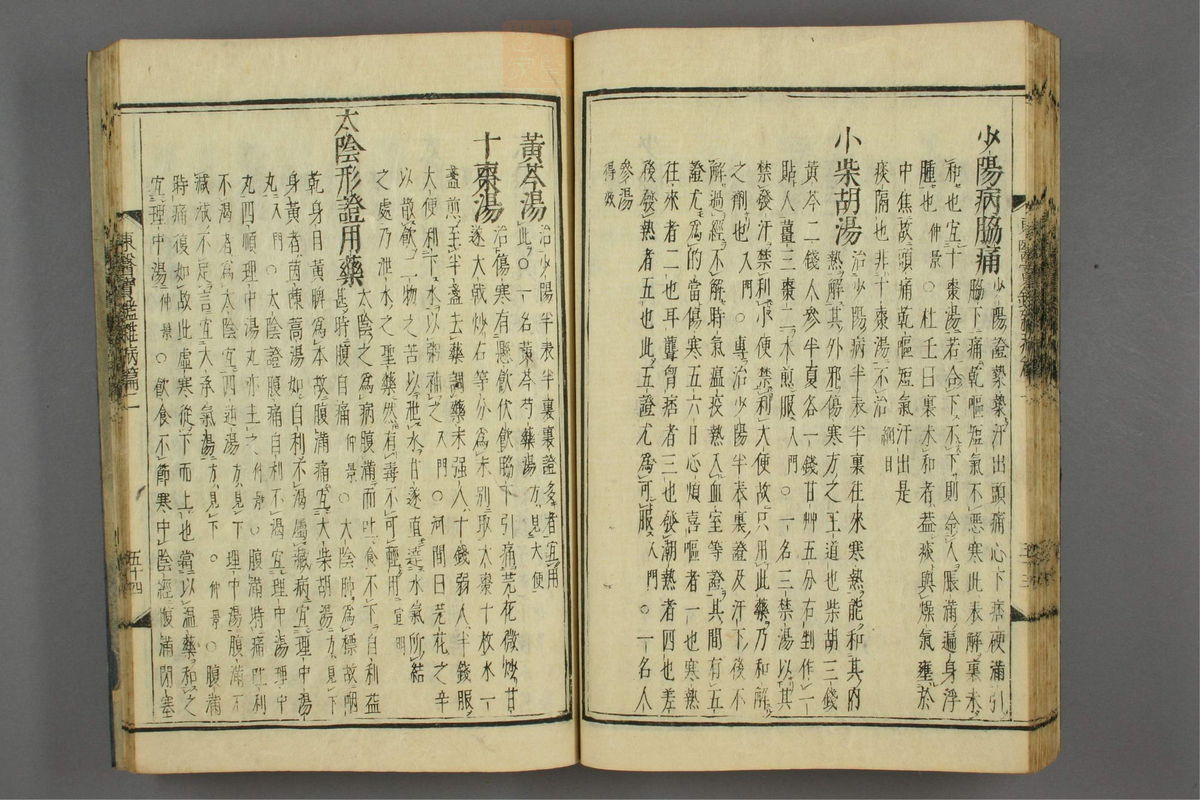 少陽病脇痛 少陽證漐漐汗出頭痛心下痞硬滿引
脇下痛乾嘔短氣不惡寒此表解裏未
和也宜十棗湯若合下不下則令人脹滿遍身浮
腫也仲景○杜壬曰裏未和者盖痰與燥氣壅於
中焦故頭痛乾嘔短氣汗出是
痰隔也非十棗湯不治 綱目
小柴胡湯 治少陽病半表半裏往來寒熱能和其內
熱解其外邪傷寒方之王道也柴胡三錢
黃芩二錢人參半夏各一錢甘艸五分右剉作一
貼入薑三棗二水煎服入門○一名三禁湯以其
禁發汗禁利小便禁利大便故只用此藥乃和解
之劑也入門○專治少陽半表裏證及汗下後不
解過經不解時氣瘟疫熱入血室等證其間有五
證尤爲的當傷寒五六日心煩喜嘔者一也寒熱
往來者二也耳聾胷痞者三也發潮熱者四也差
後發熱者五也此五證尤爲可服入門○一名人
參湯
得效
黃芩湯 治少陽半表半裏裏證多者宜用
此○一名黃芩芍藥湯方見大便
十棗湯 治傷寒有懸飮伏飮脇下引痛芫花微炒甘
遂大戟炒右等分爲末別取大棗十枚水一
盞煎至半盞去棗調藥末强人一錢弱人半錢服
大便利下水以粥補之入門○河間曰芫花之辛
以散飮二物之苦以泄水甘遂直達水氣所結
之處乃泄水之聖藥然有毒不可輕用宣明
太陰形證用藥 太陰之爲病腹滿而吐食不下自利益
甚時腹自痛仲景○太陰肺爲標故咽
乾身目黃脾爲本故腹滿痛宜大柴胡湯方見下
身黃者茵蔯蒿湯如自利不渴屬藏病宜理中湯
丸入門○太陰證腹痛自利不渴宜理中湯理中
丸四順理中湯丸亦主之仲景○腹滿時痛吐利
不渴者爲太陰宜四逆湯方見下理中湯腹滿不
減減不足言宜大承氣湯方見下○仲景○腹滿
時痛復如故此虛寒從下而上也當以溫藥和之
宜理中湯仲景○飮食不節寒中陰經腹滿閉塞
東醫寶鑑雜病篇二
五十四